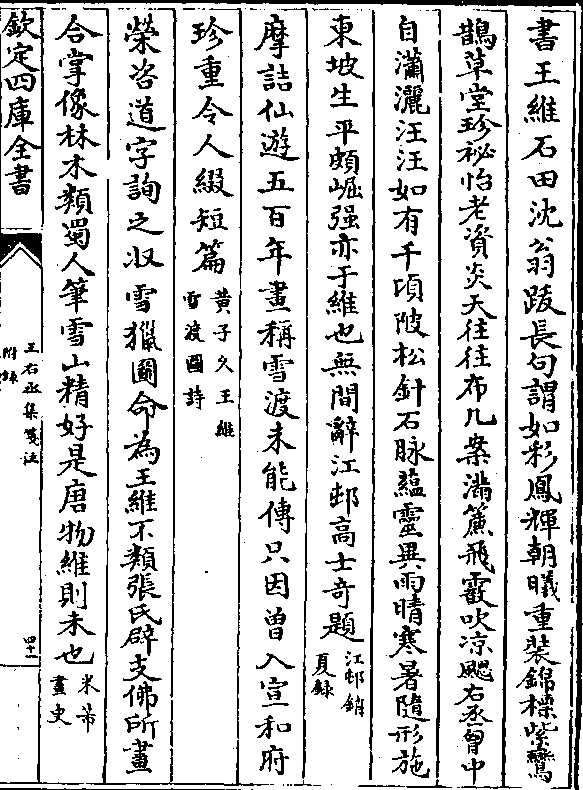 書王維石田沈翁跋長句謂如彩鳳輝朝曦重装錦標紫鸞
鵲草堂珍袐怡老資炎天往往布几案滿簾飛霰吹凉颸右丞胷中
自瀟灑汪汪如有千頃陂松針石脉藴靈異雨晴寒暑隨形施
東坡生平頗崛强亦于維也無間辭江邨高士竒題江邨銷夏錄
摩詰仙遊五百年畫稱雪渡未能傳只因曾入宣和府
珍重令人綴短篇黄子久王維雪渡圖詩
榮咨道字詢之収雪獵圖命為王維不類張氏辟支佛所畫
合掌像林木類蜀人筆雪山精好是唐物維則未也米芾畫史
欽定四庫全書
王右丞集箋注
附錄
四十一